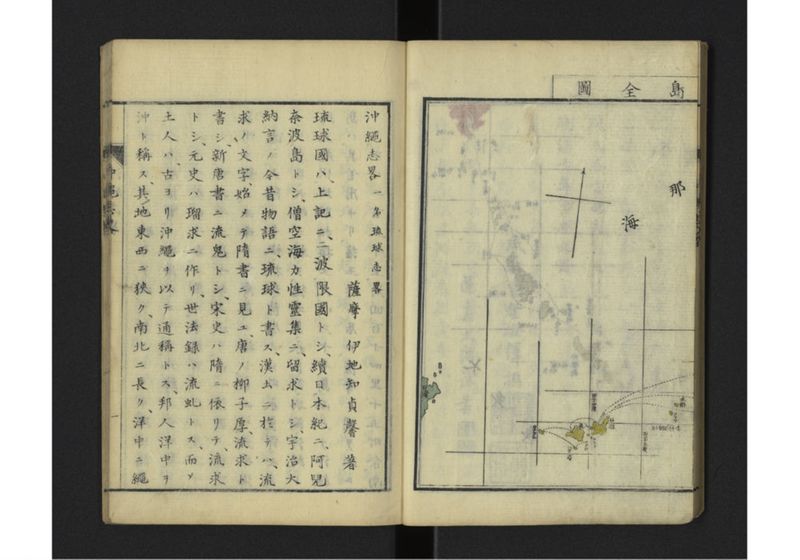 島全圖
那
海
沖繩志畧 一名琉球志畧
薩摩 伊地知貞馨 著
琉球國ハ上記ニ波限國トシ續日本紀ニ阿児
奈波島トシ僧空海カ性靈集ニ留求トシ宇治大
納言ノ今昔物語ニ琉球ト書ス漢土ニ於テハ流
求ノ文字始メテ隋書ニ見ユ唐ノ柳子厚流求ト
書シ新唐書ニ流鬼トシ宋史ハ隋ニ依リテ流求
トシ元史ハ瑠求ニ作リ世法録ハ流虬トス而ソ
土人ハ古ヨリ沖繩ヲ以テ通稱トス邦人洋中ヲ
沖ト稱ス其地東西ニ狹ク南北ニ長ク洋中ニ繩